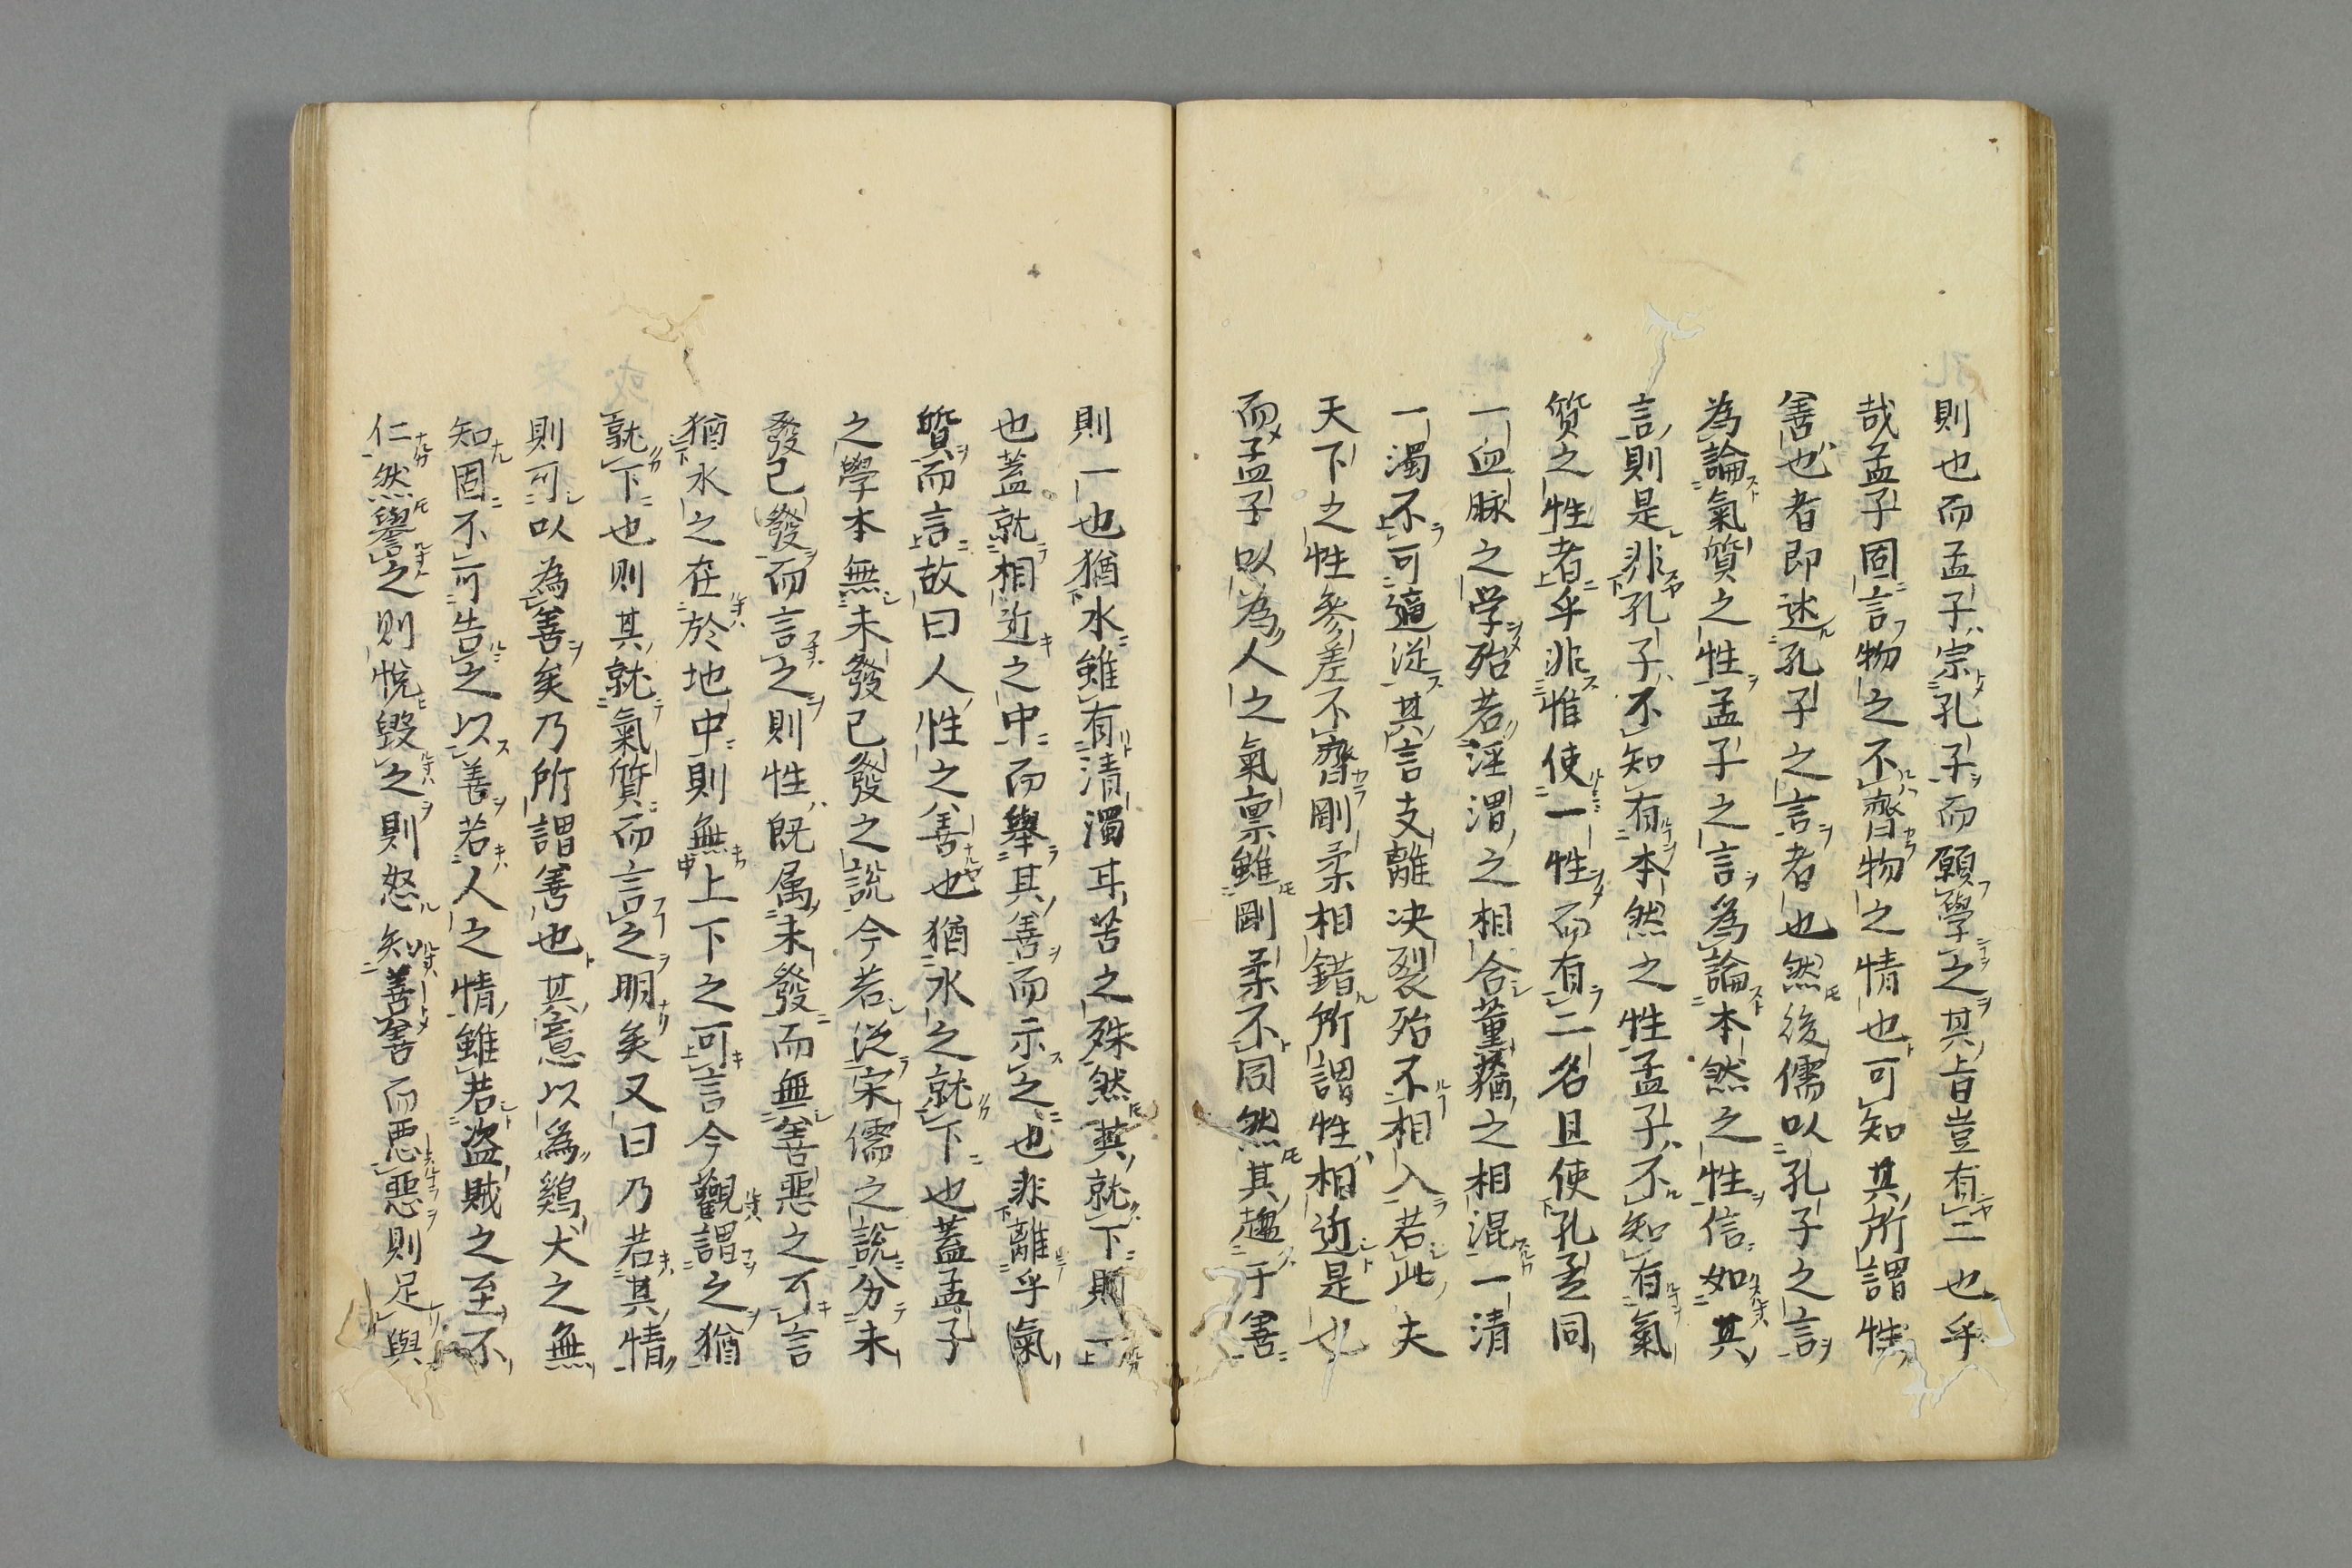 則也而孟子宗孔子而願學之其旨豈有二也乎
哉孟子固言物之不齊物之情也可知其所謂性
善也者即述孔子之言者也然後儒以孔子之言
為論氣質之性孟子之言為論本然之性信如其
言則是非孔子不知有本然之性孟子不知有氣
質之性者乎非惟使一性而有二名且使孔孟同
一血脉之学殆若淫渭之相合薫蕕之相混一清
一濁不可適従其言支離决裂殆不相入若此夫
天下之性參差不齊剛柔相錯所謂性相近是也
而孟子以為人之氣禀雖剛柔不同然其趨于善
則一也猶水雖有清濁耳苦之殊然其就下則一
也蓋就相近之中而舉其善而示之也非離乎氣
質而言故曰人性之善也猶水之就下也蓋孟子
之學本無未發已發之說今若従宋儒之說分未
發已發而言之則性既属未發而無善惡之可言
猶水之在於地中則無上下之可言今觀謂之猶
就下也則其就氣質而言之明矣又曰乃若其情
則可以為善矣乃所謂善也其意以為鷄犬之無
知固不可告之以善若人之情雖若盗賊之至不
仁然譽之則悦毀之則怒知善善而悪惡則足與